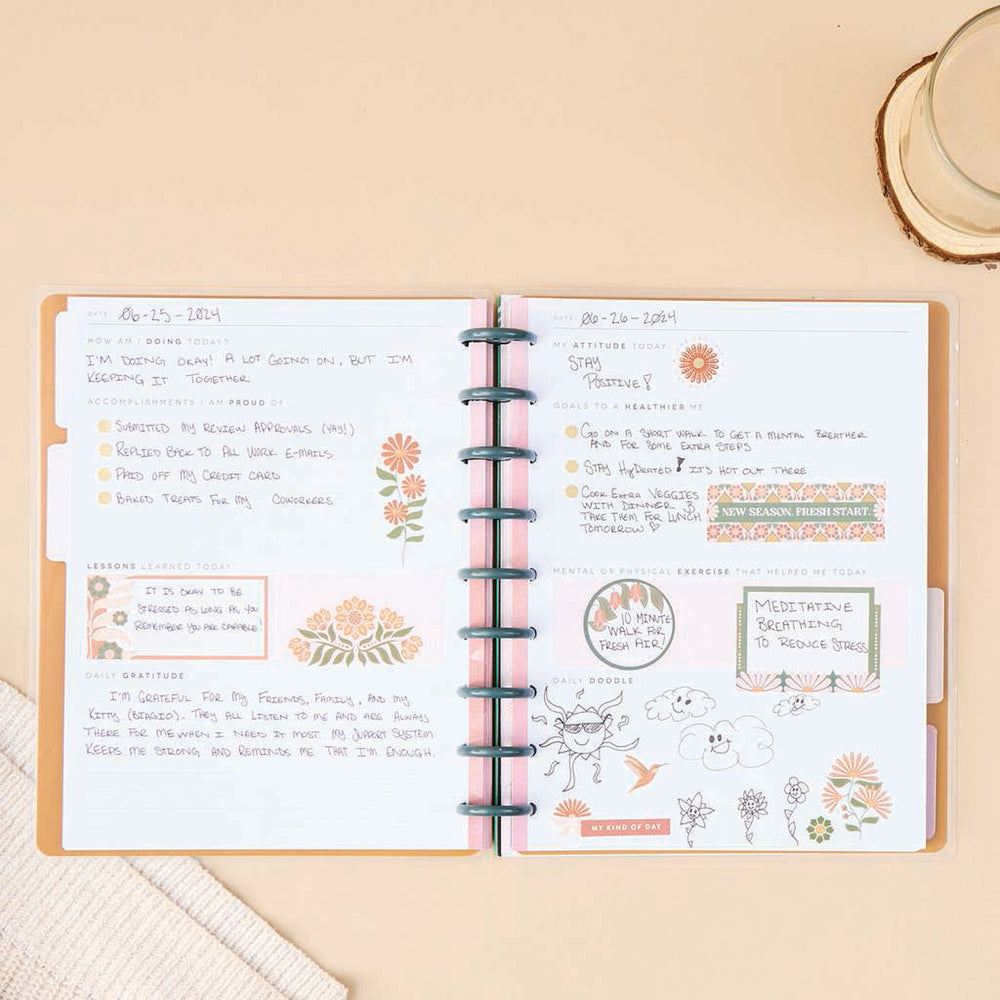 DATE 06-25-2024
HOW AM I DOING TODAY?
I'M DOING OKAY! A LOT GOING ON, BUT I'M
KEEPING IT TOGETHER
ACCOMPLISHMENTS I AM PROUD OF
SUBMITTED MY REVIEW APPROVALS (YAY!)
REPLIED BACK TO ALL WORK E-MAILS
PAID OFF MY CREDIT CARD
BAKED TREATS FOR MY COWORKERS
LESSONS LEARNED TODAY
IT IS OKAY TO BE
STRESSED AS LONG AS YOU
REMEMBER YOU ARE CAPABLE!
DAILY GRATITUDE
I'M GRATEFUL FOR MY FRIENDS, FAMILY, AND MY
KITTY (BIAGIO). THEY ALL LISTEN TO ME AND ARE ALWAYS
THERE FOR ME WHEN I NEED IT MOST. MY SUPPORT SYSTEM
KEEPS ME STRONG AND REMINDS ME THAT I'M ENOUGH.
DATE 06-26-2024
MY ATTITUDE TODAY
STAY
POSITIVE!
GOALS TO A HEALTHIER ME
GO ON A SHORT WALK TO GET A MENTAL BREATHER
AND FOR SOME EXTRA STEPS
STAY HYDRATED! IT'S HOT OUT THERE
COOK EXTRA VEGGIES
WITH DINNER &
TAKE THEM FOR LUNCH
TOMORROW ♡
NEW SEASON. FRESH START.
MENTAL OR PHYSICAL EXERCISE THAT HELPED ME TODAY
10 MINUTE
WALK FOR
FRESH AIR!
MEDITATIVE
BREATHING
TO REDUCE STRESS
DAILY DOODLE
MY KIND OF DAY